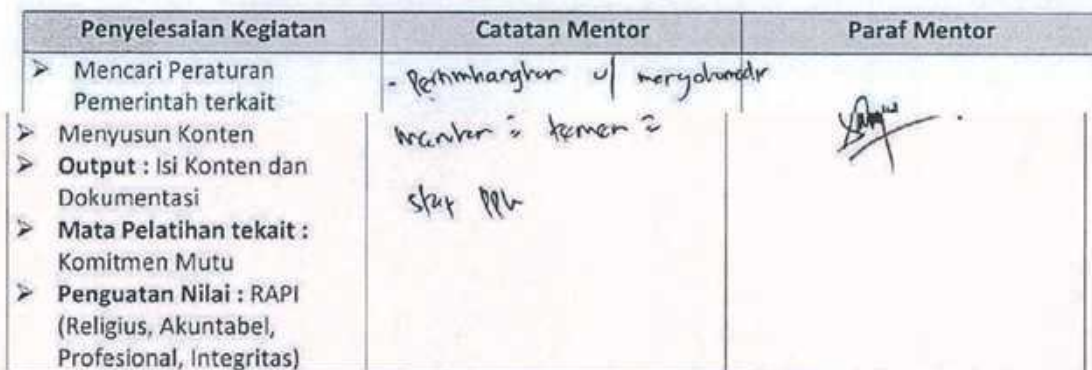 Penyelesaian Kegiatan Catatan Mentor Paraf Mentor
➢ Mencari Peraturan
Pemerintah terkait
- u/
➢ Menyusun Konten
➢ Output : Isi Konten dan
Dokumentasi
➢ Mata Pelatihan tekait :
Komitmen Mutu
➢ Penguatan Nilai : RAPI
(Religius, Akuntabel,
Profesional, Integritas)